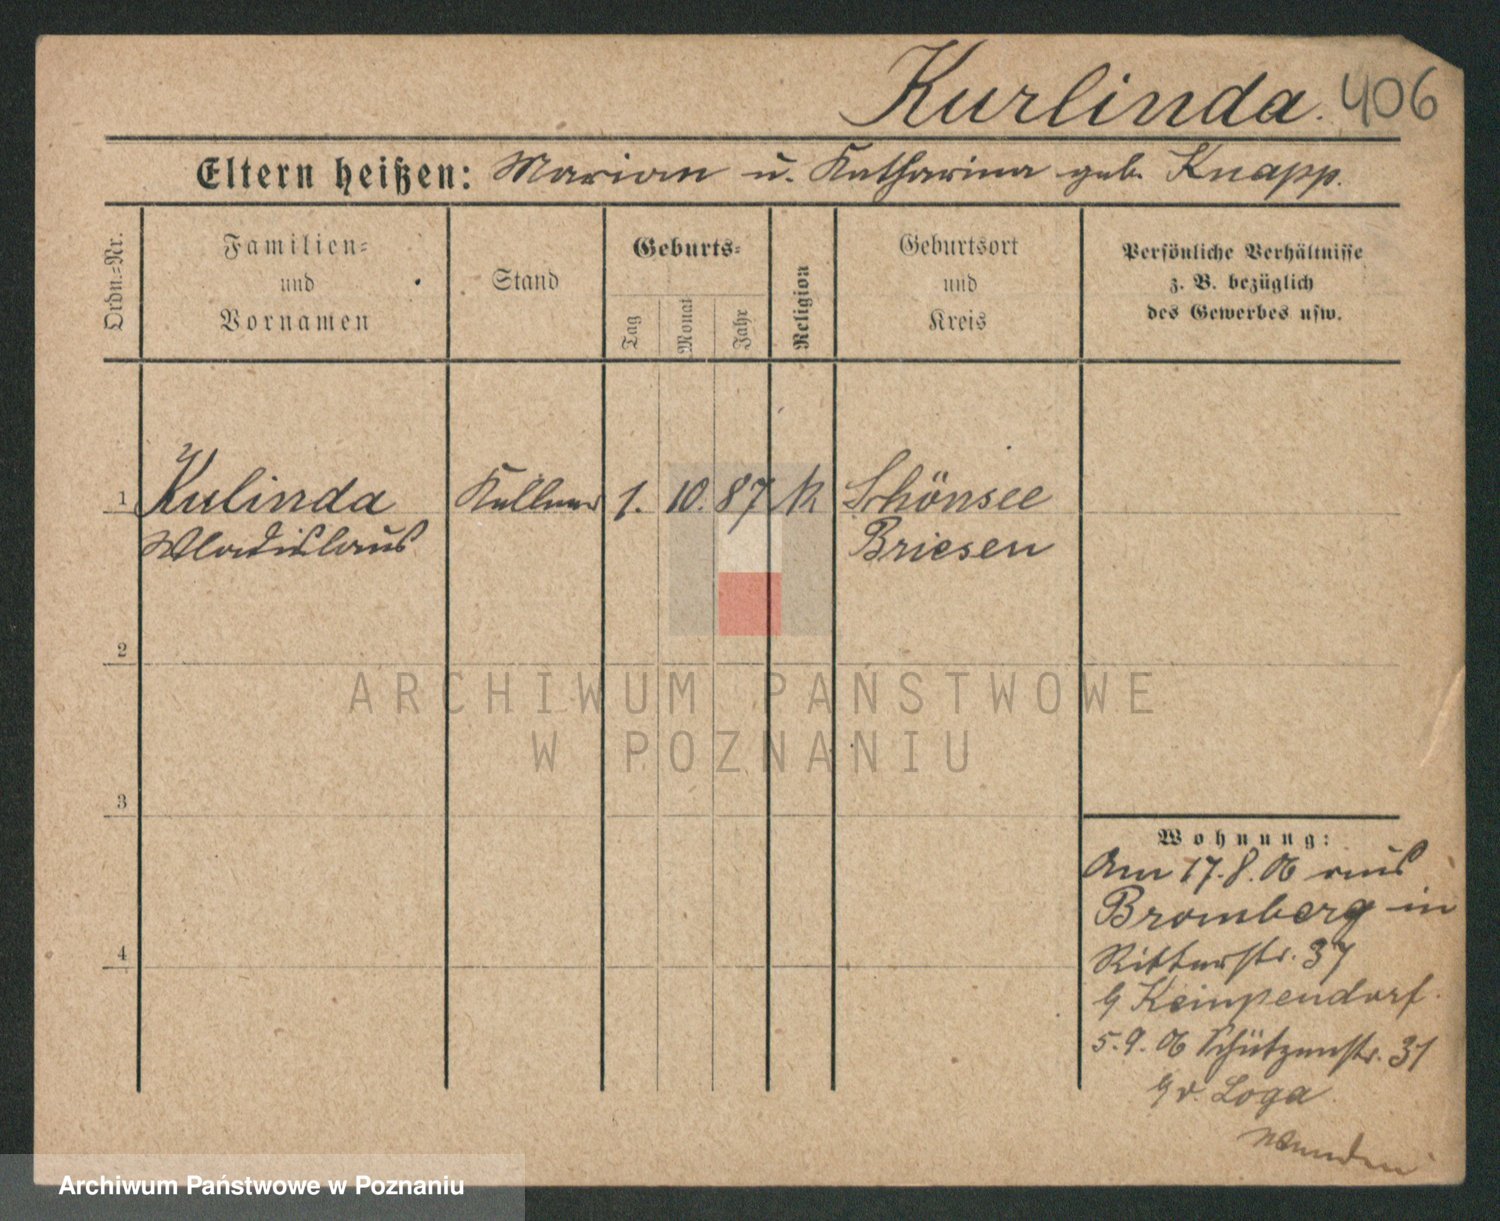 Kurlinda. 406
Eltern heißen: Marian u. Katharina geb. Knapp.
Ordn.=Nr.
Familien=
und
Vornamen
Stand
Geburts=
Tag
Monat
Jahr
Religion
Geburtsort
und
Kreis
Persönliche Verhältnisse
z. B. bezüglich
des Gewerbes usw.
1 Kulinda Kellner 1. 10. 87 k. Schönsee
Wladislaus Briesen
2
3
4
ARCHIWUM PAŃSTWOWE
W POZNANIU
Wohnung:
Am 17.8.06 aus
Bromberg in
Ritterstr. 37
Kempendorf.
5.9.06 Schützenstr. 31
v. Loga
Archiwum Państwowe w Poznaniu